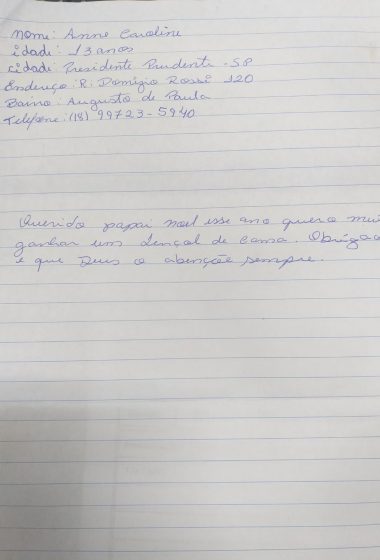 nome: Anne Caroline
idade: 13 anos
cidade: Presidente Prudente - SP
Endereço: R: Domigio Rossi 120
Bairro: Augusto de Paula
Telefone: (18) 99723-5940
Querido papai noel esse ano quero mui
ganhar um lençol de cama. Obrigad
e que Deus o abençõe sempre.